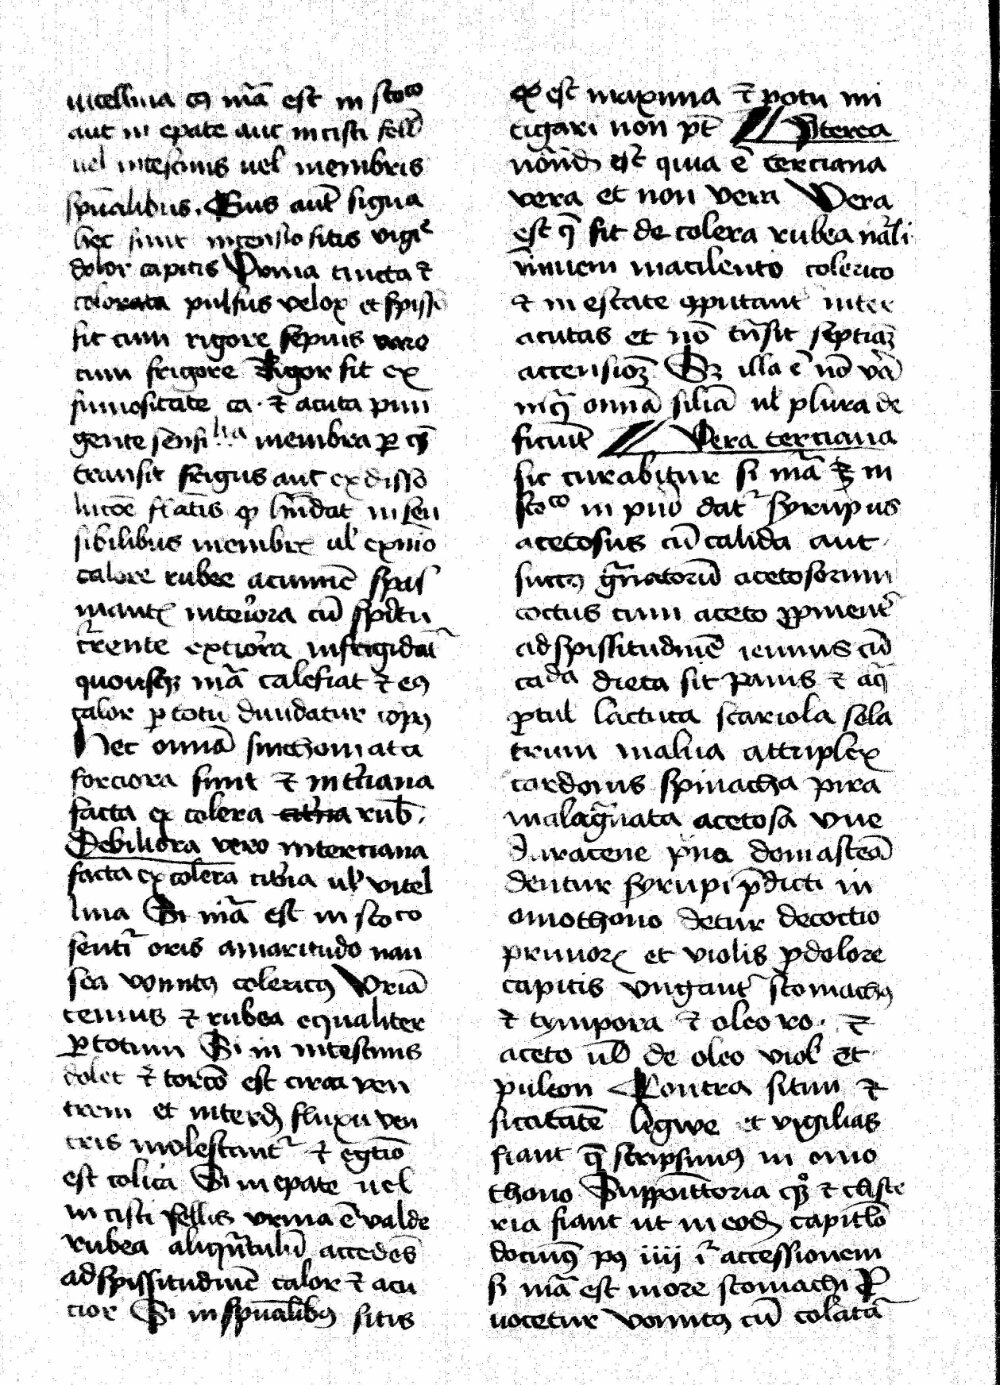 uitellina cuius mã est in stoco
aut in epate aut in cisti fell
uel intestinis uel membris
spũalibus. Eius aut̃ signa
hec sunt intensio sitis vigi
dolor capitis Vrina tincta et
colorata pulsus velox et spisso
fit cum rigore sepius vero
cum frigore Rigor fit ex
fumositate ca. et acuta pun
gente sensi lia membra per que
transit frigus aut ex disso
lucõe
sibilibus membr ul ex nĩo
calore rubee acumine spas
mante interiora cũ spiritu
trẽente exteriora infrigidat
quousque mã calefiat et eius
calor per totũ diuidatur corpus
Hec omnia sinthomata
forciora sunt et in terciana
facta ex colera citrina rub.
Debiliora vero in terciana
facta ex colera citrina ul vitel
lina Si mã est in stoco
sentitur oris amaritudo nau
sea vomitus colericus Vrina
tenuis et rubea equaliter
per totum Si in intestinis
dolet et torcõ est circa ven
trem et interdum fluxu ven
tris molestant et egestio
est colica Si in epate uel
in cisti fellis vrina ẽ valde
rubea aliquantulũ accedens
ad spissitudinẽ calor et acu
cior Si in spũalibus sitis
est maxima et potu mi
tigari non põt Interea
notandum est quia ẽ terciana
vera et non vera Vera
est que fit de colera rubea nãli
iuuenì macilento colerico
et in estate computant inter
acutas et nõ transit septimã
accensionem Sed illa ẽ nõ vera
in qua omnia similia ul plura de
ficiunt Vera terciana
sic curabitur si mã sit in
stoco in primo datur syrupus
acetosus cũ calida aut
succus granatorũ acetosorum
coctus cum aceto
ad spissitudinẽ ieiunis cũ
cada dieta sit panis et aq
portul lactuca scariola sola
trum malua attriplex
cardonis spinacha pira
malagranata acetosa vue
duracene pruna domascena
dentur syrupi predicti in
omothono detur decoctio
prunorum et violis pro dolore
capitis vngantur stomachus
et tympora et oleo ro. et
aceto uel de oleo viol et
puleon Contra sitim et
siccitatẽ lingwe et vigilias
fiant que scripsimus in omo
thono Suppositoria quoque et cliste
ria fiant ut in eodem capitulo
docuimus post iiii accessionem
si mã est in ore stomachi pro
uocetur vomitus cũ colatura